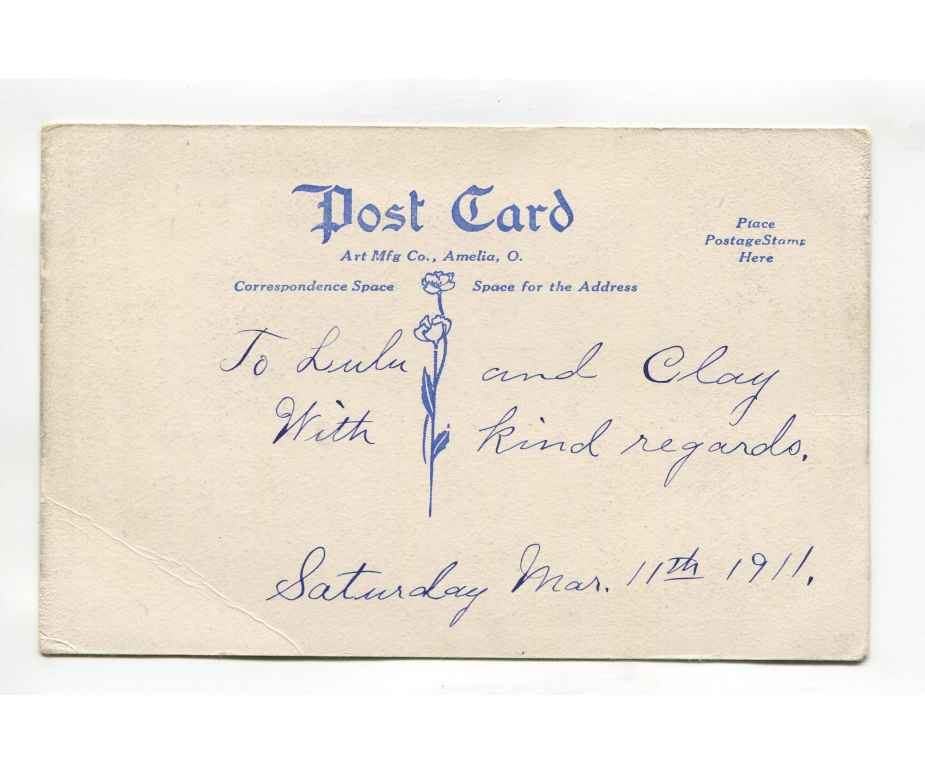 Post Card
Art Mfg Co., Amelia, O.
Place
Postage Stamp
Here
Correspondence Space
Space for the Address
To Lulu and Clay
With kind regards.
Saturday Mar. 11th 1911.